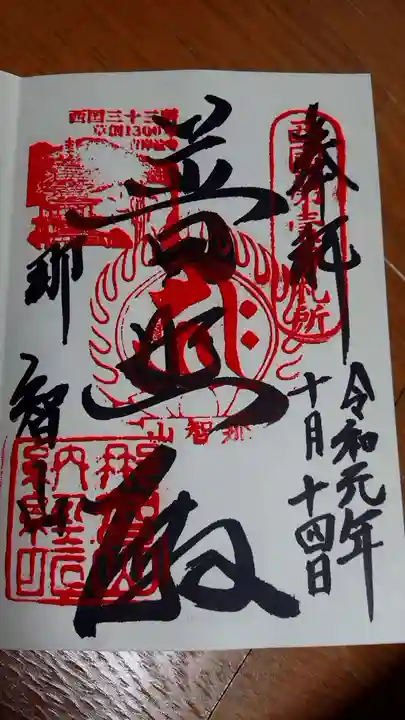 奉拝
西国第壹番札所
令和元年
十月十四日
普照殿
西国三十三所
草創1300年
那智山
那智山